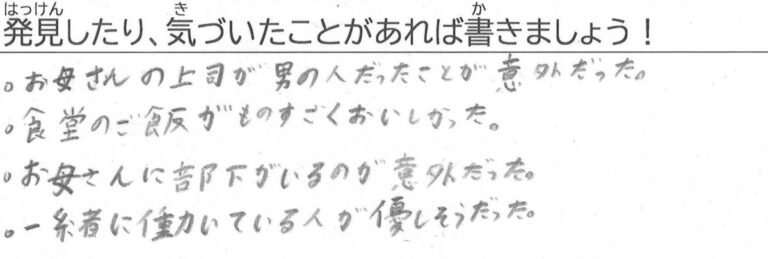 はっけん き か
発見したり、気づいたことがあれば書きましょう！
。お母さんの上司が男の人だったことが意外だった。
。食堂のご飯がものすごくおいしかった。
。お母さんに部下がいるのが意外だった。
。一糸者に働いている人が優しそうだった。